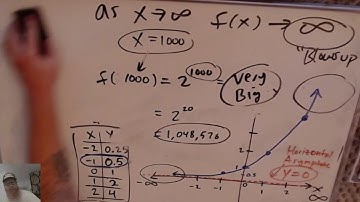 as x→∞ f(x) → ∞
x = 1000
"Blowsup
f(1000) = 2^1000 = Very Big
= 2^20
= 1,048,576
x | y
-2 | 0.25
-1 | 0.5
0 | 1
1 | 2
2 | 4
Horizontal
Asymptote
y=0
-∞ -2 -1 0.5 1 2 x
∞